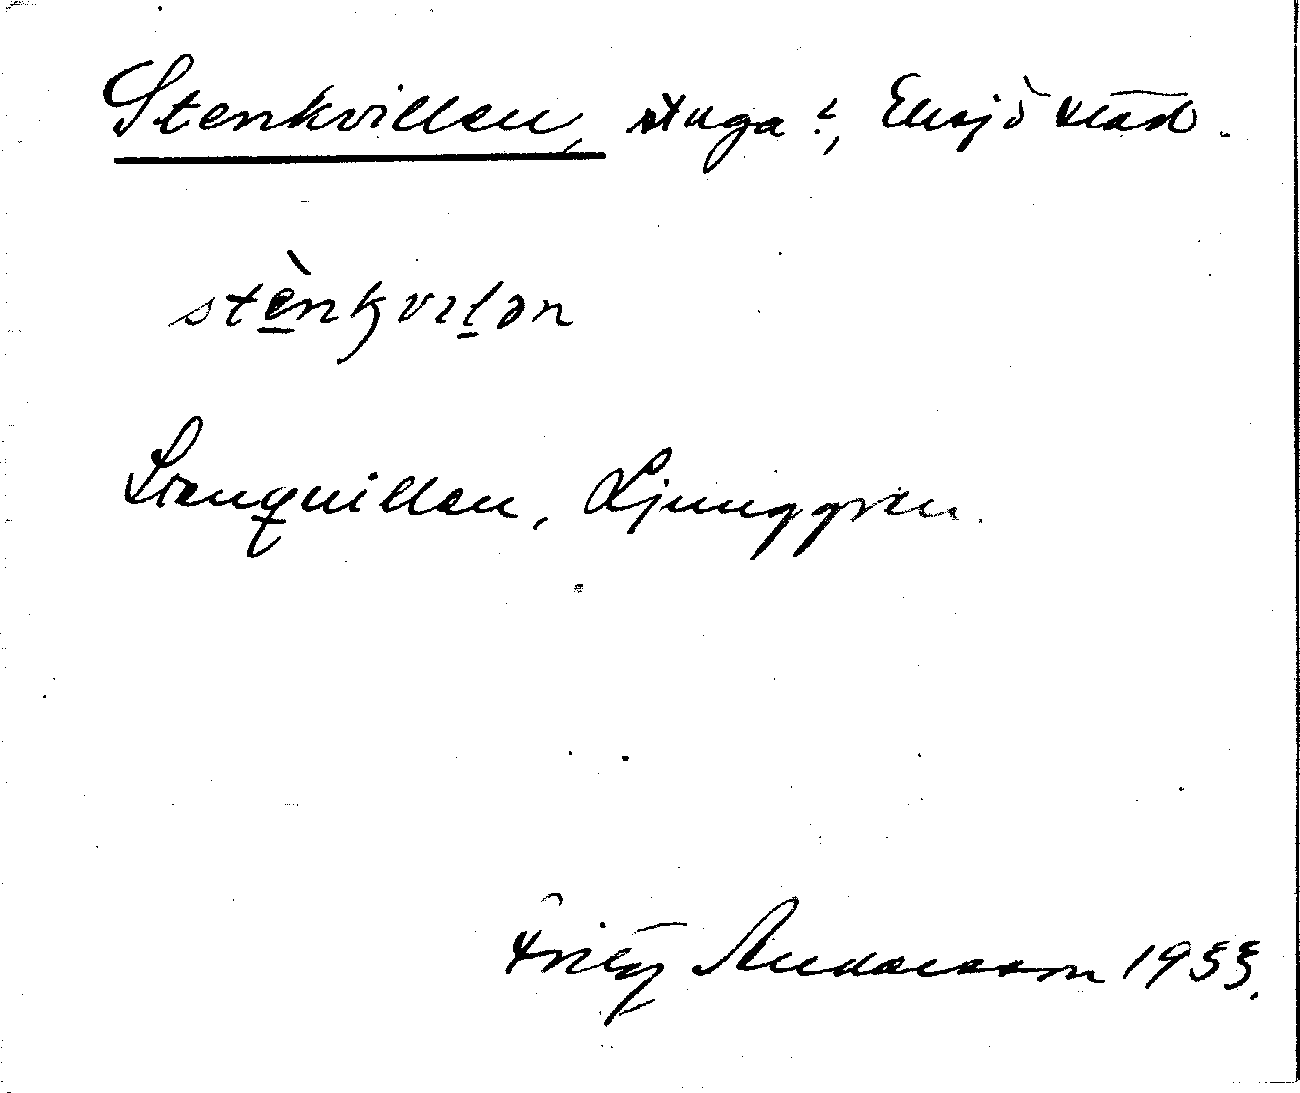 Stenkvillen, stuga i, Eksjö stad.
stènkvɩlən
Stenquillen, Ljunggren.
Fritz Andersson 1933.